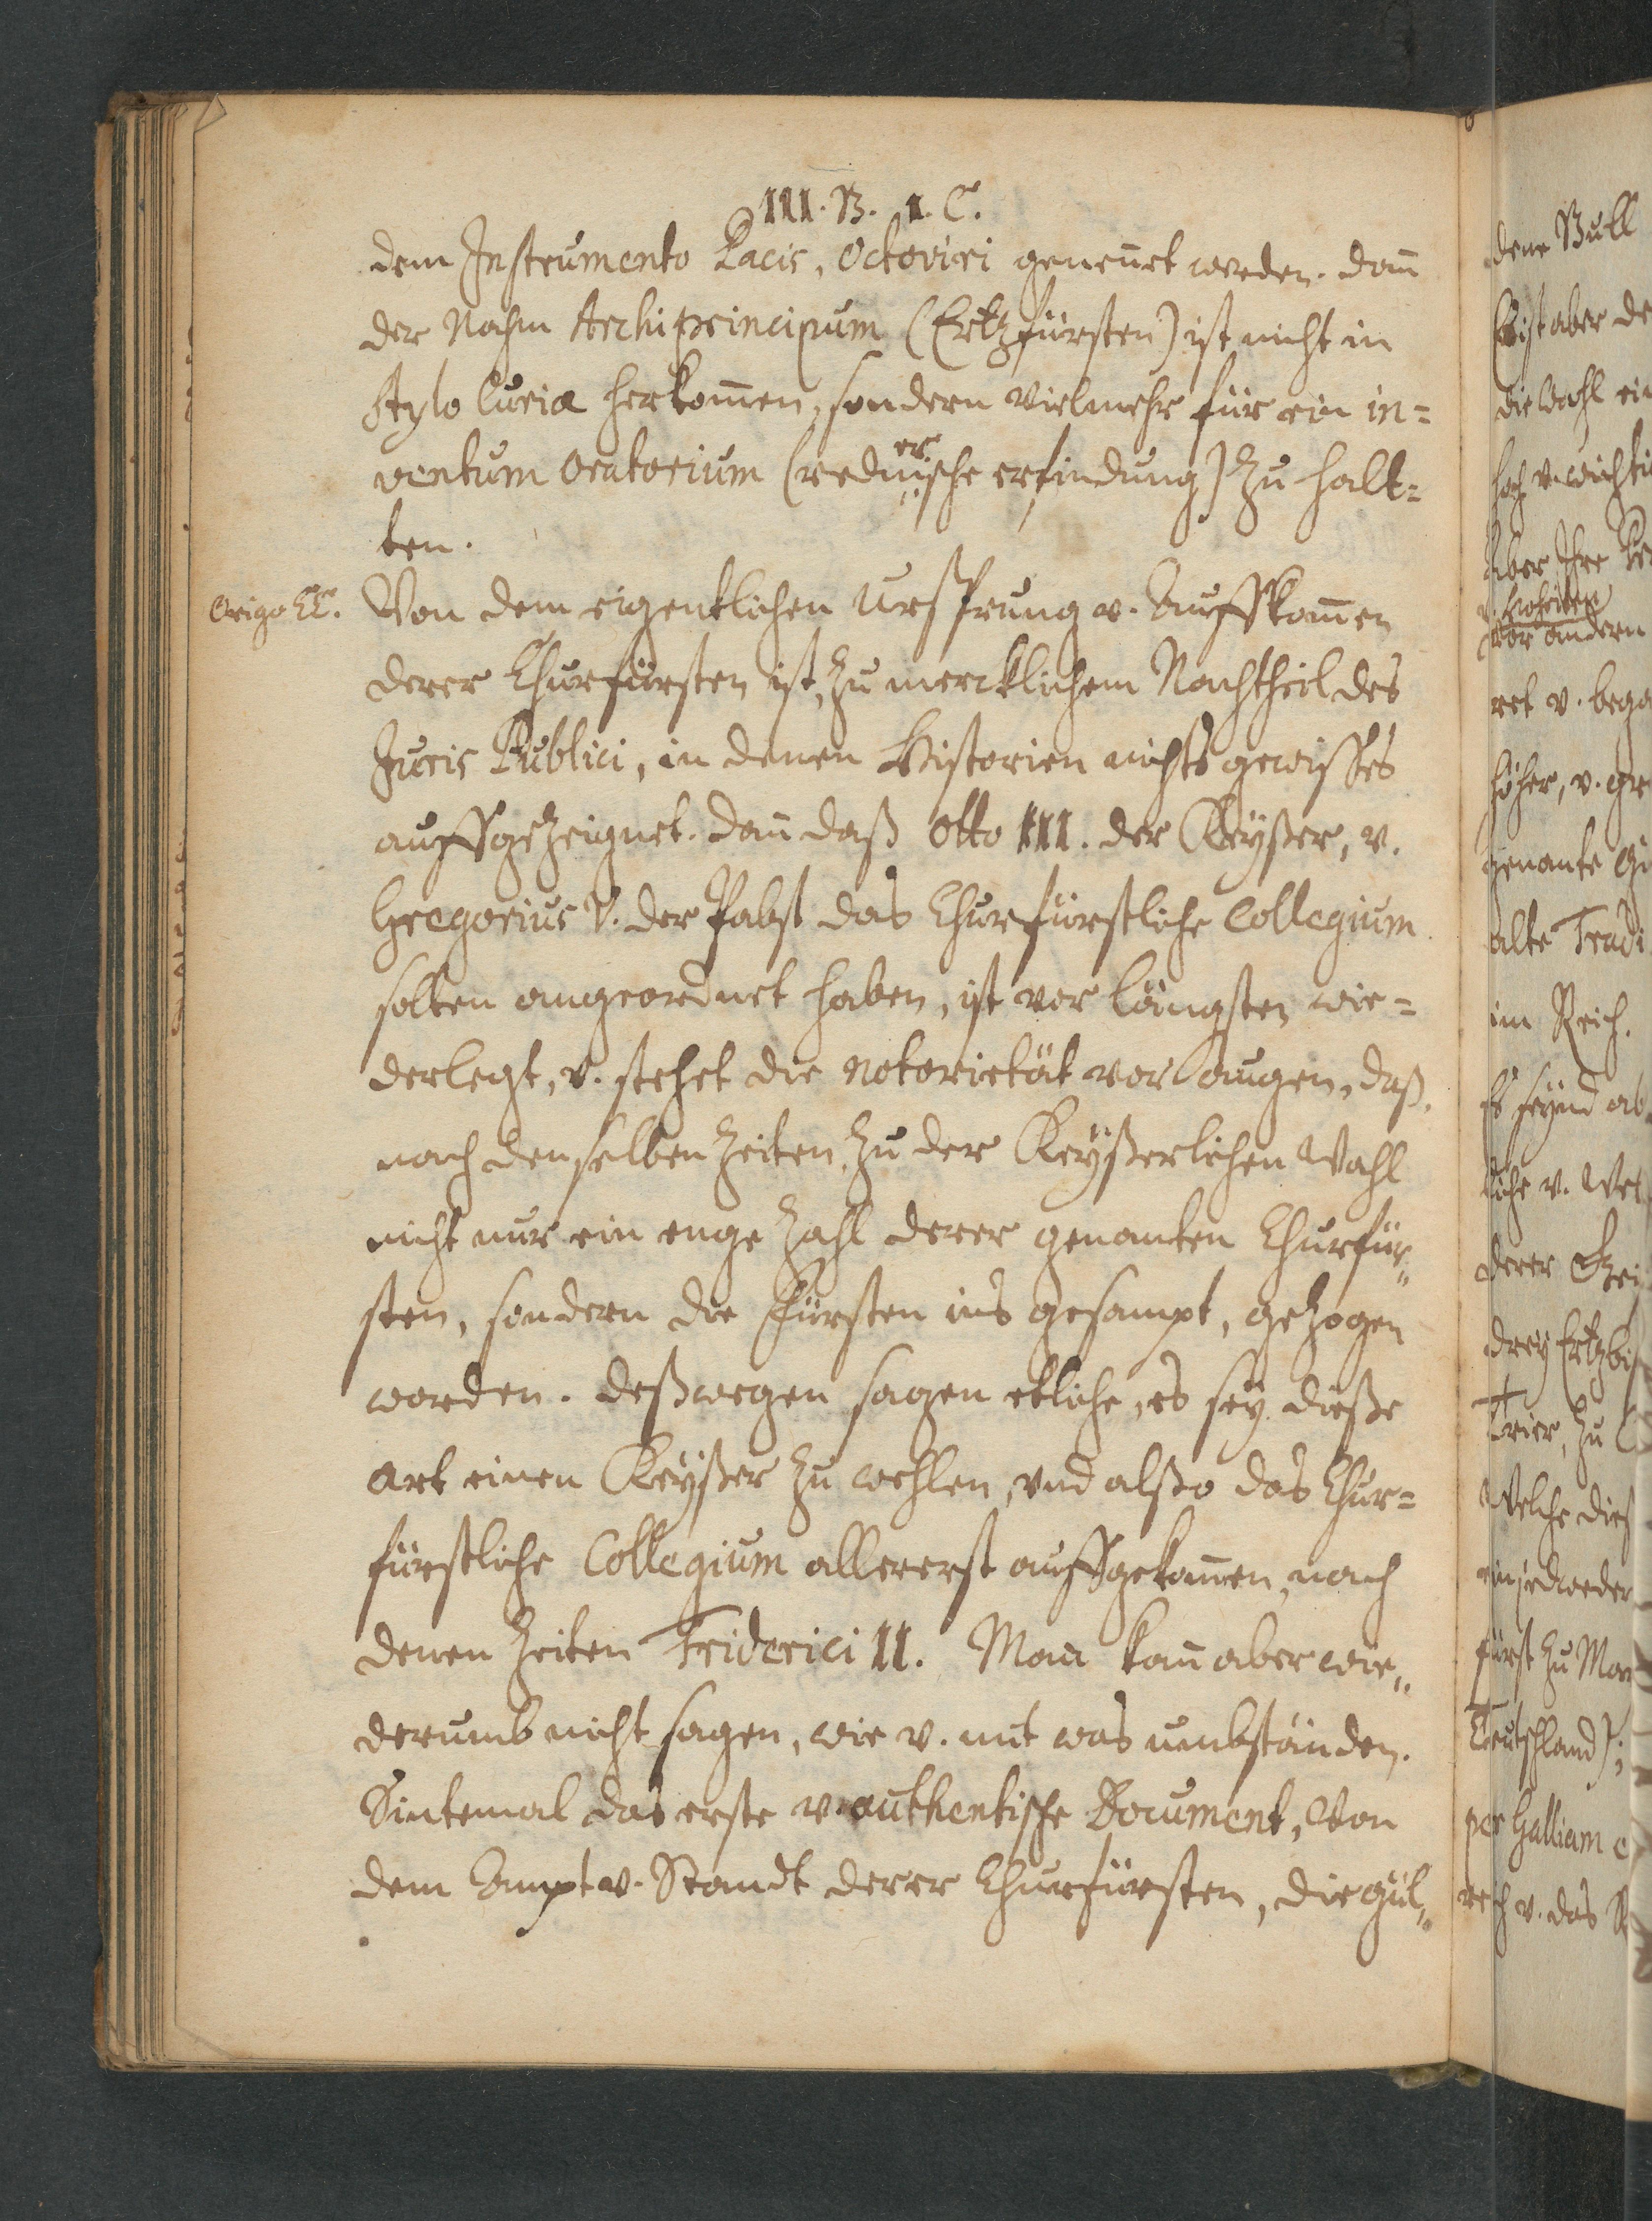 III. B. 1. C.
dem Instrumento Pacis, Octoviri genennet werden. dann
der Nahm Archiprincipum (Ertzfürsten) ist nicht in
Stylo Curiæ herkommen, sondern vielmehr für ein in=
ventum Oratorium (rednerische erfindung) zu halt=
ten.
Origo EE. Von dem eigentlichen Ursprung v. Auffkommen
derer Churfürsten ist, zu mercklichem Nachtheil des
Juris Publici, in denen Historien nichts gewisses
auffgezeignet. dann daß Otto III. der Keyßer, v.
Gregorius V. der Pabst das Churfürstliche Collegium
solten angeordnet haben, ist vor längsten wie=
derlegt, v. stehet die notorietät vor augen, daß,
nach denselben Zeiten, zu der Keyßerlichen Wahl
nicht nur ein enge Zahl derer genanten Churfür„
sten, sondern die Fürsten ins gesampt, gezogen
worden. deßwegen sagen etliche, es sey dieße
art einen Keyßer zu wehlen, vnd alßo das Chur=
fürstliche Collegium allererst auffgekommen, nach
denen Zeiten Friderici II. Man kann aber wie„
derumb nicht sagen, wie v. mit was umbständen.
Sintemal das erste v. authentische Document, Von
dem Ampt v. Standt derer Churfürsten, die gül„
dene Bull
Es ist aber de
die Wahl ein
hoch v. wichti
aber Ihre
v. Hoheiten
vor andern
ret v. bega
höher, v. gr
genante
alte Tradi
im Reich.
Es seynd ab
liche v. Wel
derer
drey Ertzbi
Trier, zu
Welche dies
ein jedweder
fürst zu Mai
Teutschland);
per Galliam e
reich v. das